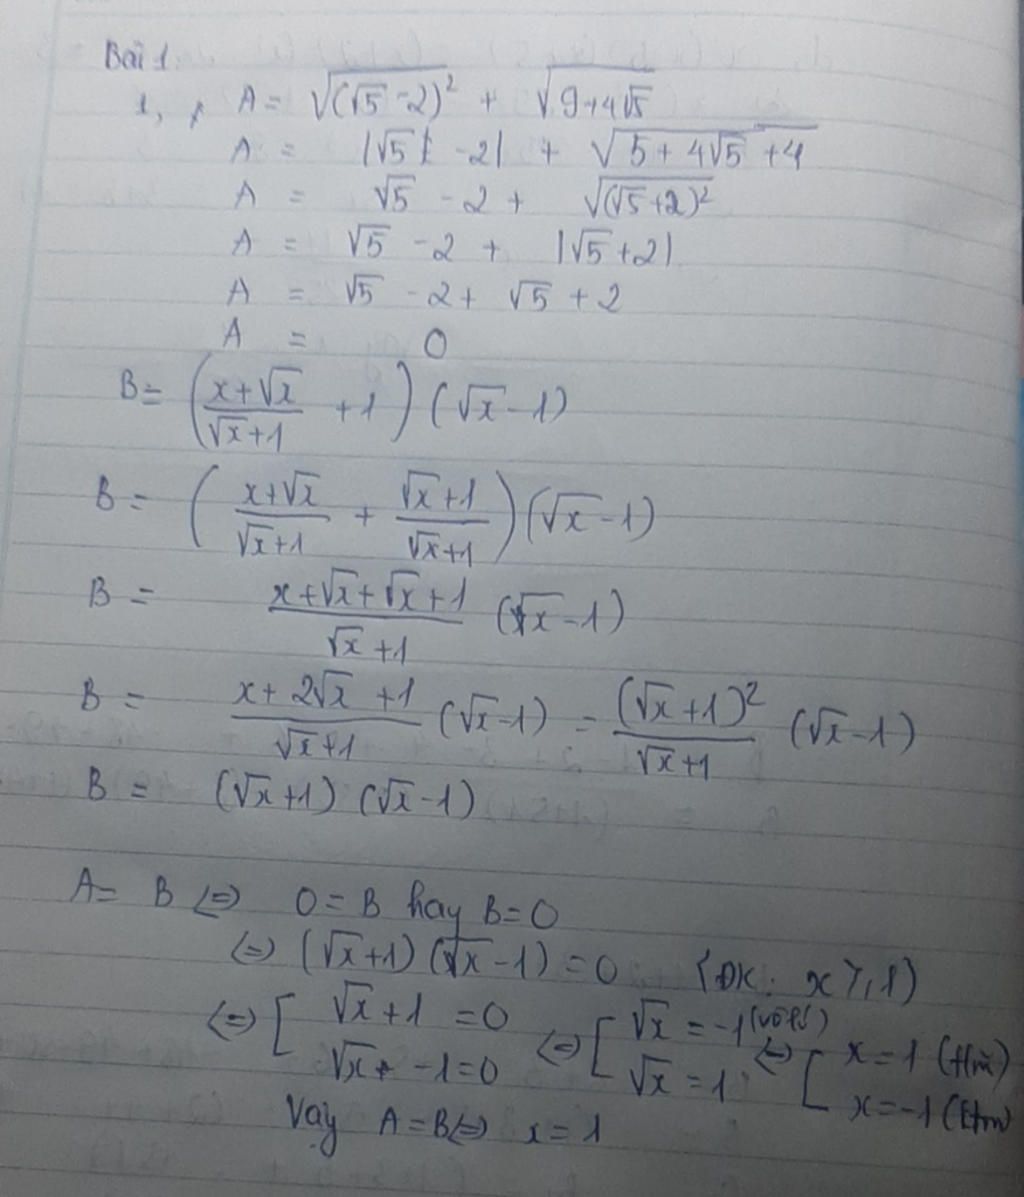 Bài 1.
1, A = √(√5 -2)² + √9+4√5
A = |√5 -2| + √5 + 4√5 +4
A = √5 - 2 + √(√5+2)²
A = √5 - 2 + |√5 +2|
A = √5 - 2 + √5 + 2
A = 0
B = (x+√x / √x+1 + 1) (√x - 1)
B = (x+√x / √x+1 + √x+1 / √x+1) (√x - 1)
B = x+√x+√x+1 / √x+1 (√x - 1)
B = x+ 2√x +1 / √x+1 (√x-1) = (√x+1)² / √x+1 (√x-1)
B = (√x+1) (√x-1)
A = B <=> 0 = B hay B = 0
<=> (√x+1) (√x -1) = 0 (ĐK: x ≥ 1)
<=> [ √x + 1 = 0 <=> [ √x = -1 (vô lí) <=> [ x = 1 (t/m)
√x -1 = 0 √x = 1 x = -1 (ktm)
Vậy A = B <=> x = 1